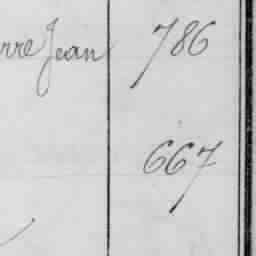 rre Jean 786
667